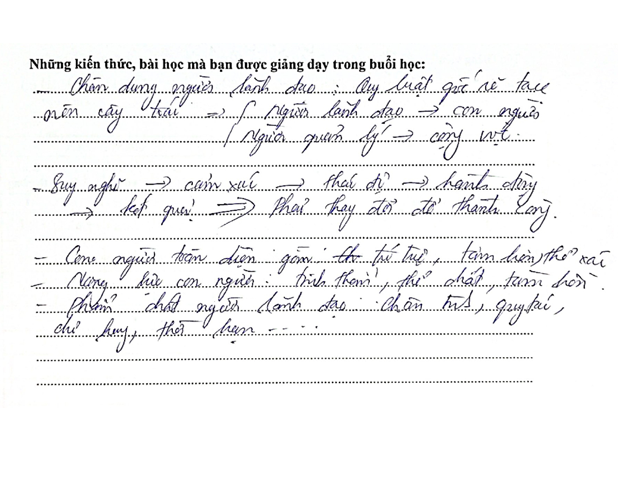 Những kiến thức, bài học mà bạn được giảng dạy trong buổi học:
- Chân dung người lãnh đạo : Quy luật gốc rễ tạo
nên cây trái => { Người lãnh đạo -> con người
{ Người quản lý -> công việc.
- Suy nghĩ -> cảm xúc -> thái độ -> hành động
-> kết quả => Phải thay đổi để thành công.
- Con người toàn diện gồm trí tuệ, tâm hồn, thể xác
- Năng lực con người : tinh thần, thể chất, tâm hồn.
- Phẩm chất người lãnh đạo : chân thật, quy tắc,
chỉ huy, thời hạn ....